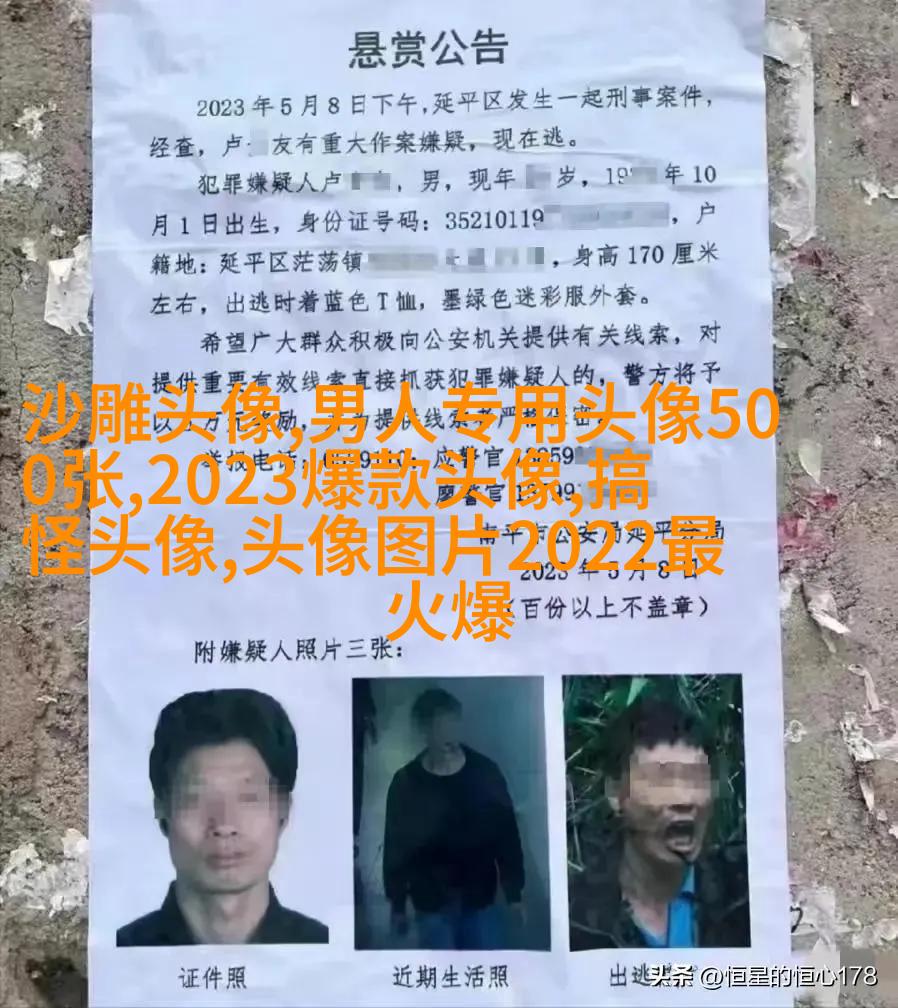 悬赏公告
2023年5月8日下午,延平区发生一起刑事案件,
经查，卢 友有重大作案嫌疑，现在逃。
犯罪嫌疑人卢 ，男，现年 岁，19 年10
月1日出生，身份证号码：35210119 ，户
籍地：延平区茫荡镇 ，身高170厘米
左右，出逃时着蓝色T恤，墨绿色迷彩服外套。
希望广大群众积极向公安机关提供有关线索，对
提供重要有效线索直接抓获犯罪嫌疑人的，警方将予
沙雕头像,男人专用头像50
0张,2023爆款头像,搞
怪头像,头像图片2022最
火爆
举报电话
应警官
廖警官
南平市公安局延平分局
2023年5月8日
（百份以上不盖章）
附嫌疑人照片三张：
证件照
近期生活照
出逃
头条 @恒星的恒心178